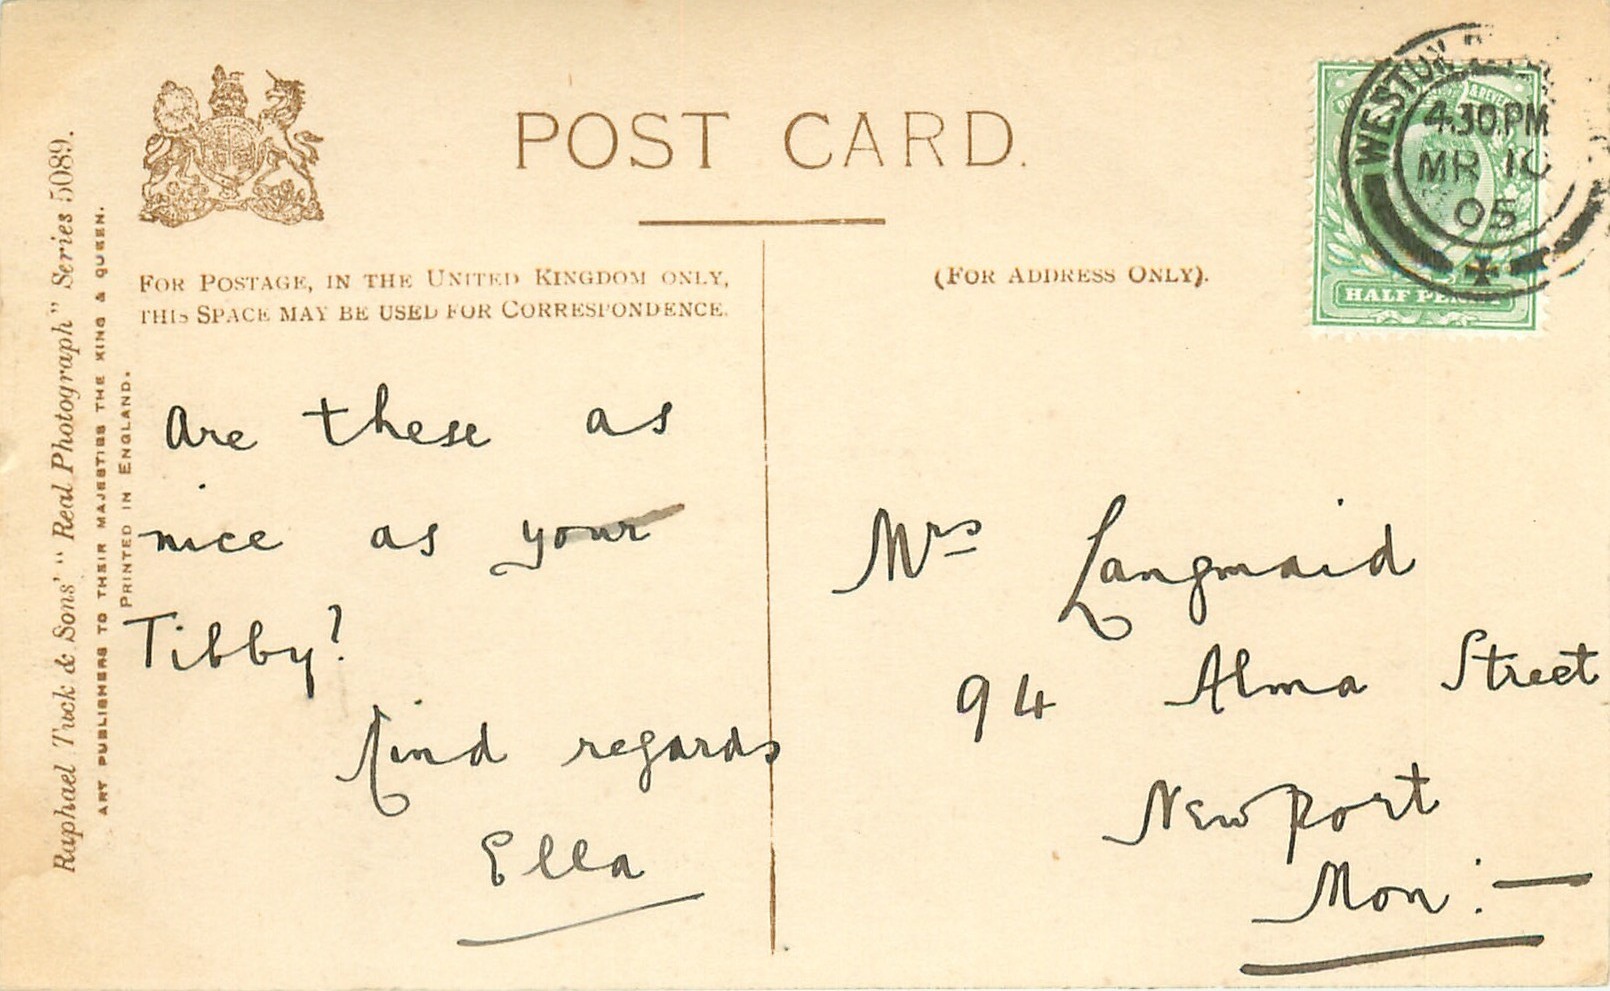 POST CARD.
FOR POSTAGE, IN THE UNITED KINGDOM ONLY,
THIS SPACE MAY BE USED FOR CORRESPONDENCE.
(FOR ADDRESS ONLY).
Raphael Tuck & Sons' "Real Photograph" Series 5089.
ART PUBLISHERS TO THEIR MAJESTIES THE KING & QUEEN.
PRINTED IN ENGLAND.
WESTON
4.30.PM
MR 10
05
HALF PENNY
Are these as
nice as your
Tibby?
Kind regards
Ella
Mrs Langmaid
94 Alma Street
Newport
Mon:—